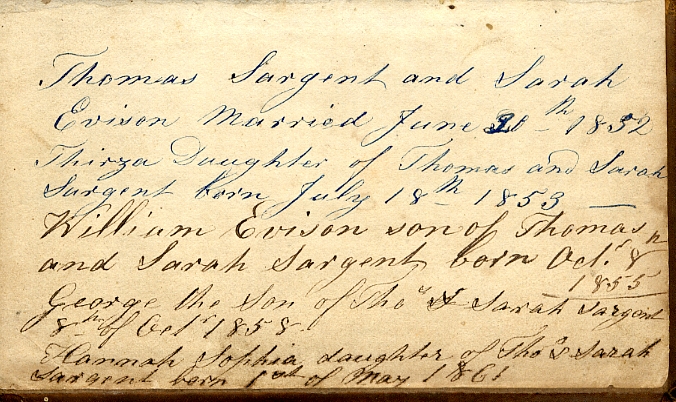 Thomas Sargent and Sarah
Evison Married June 20th 1852
Thirza Daughter of Thomas and Sarah
Sargent born July 18th 1853 —
William Evison son of Thomas
and Sarah Sargent born Octr 8th
1855
George the Son of Thos & Sarah Sargent
8th of Octr 1858
Hannah Sophia daughter of Thos & Sarah
Sargent born 1st of May 1861